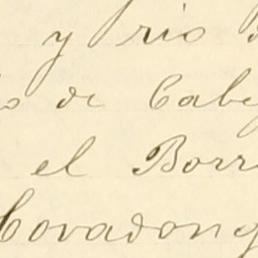 y rio
de Cabe
el Borr
Covadong